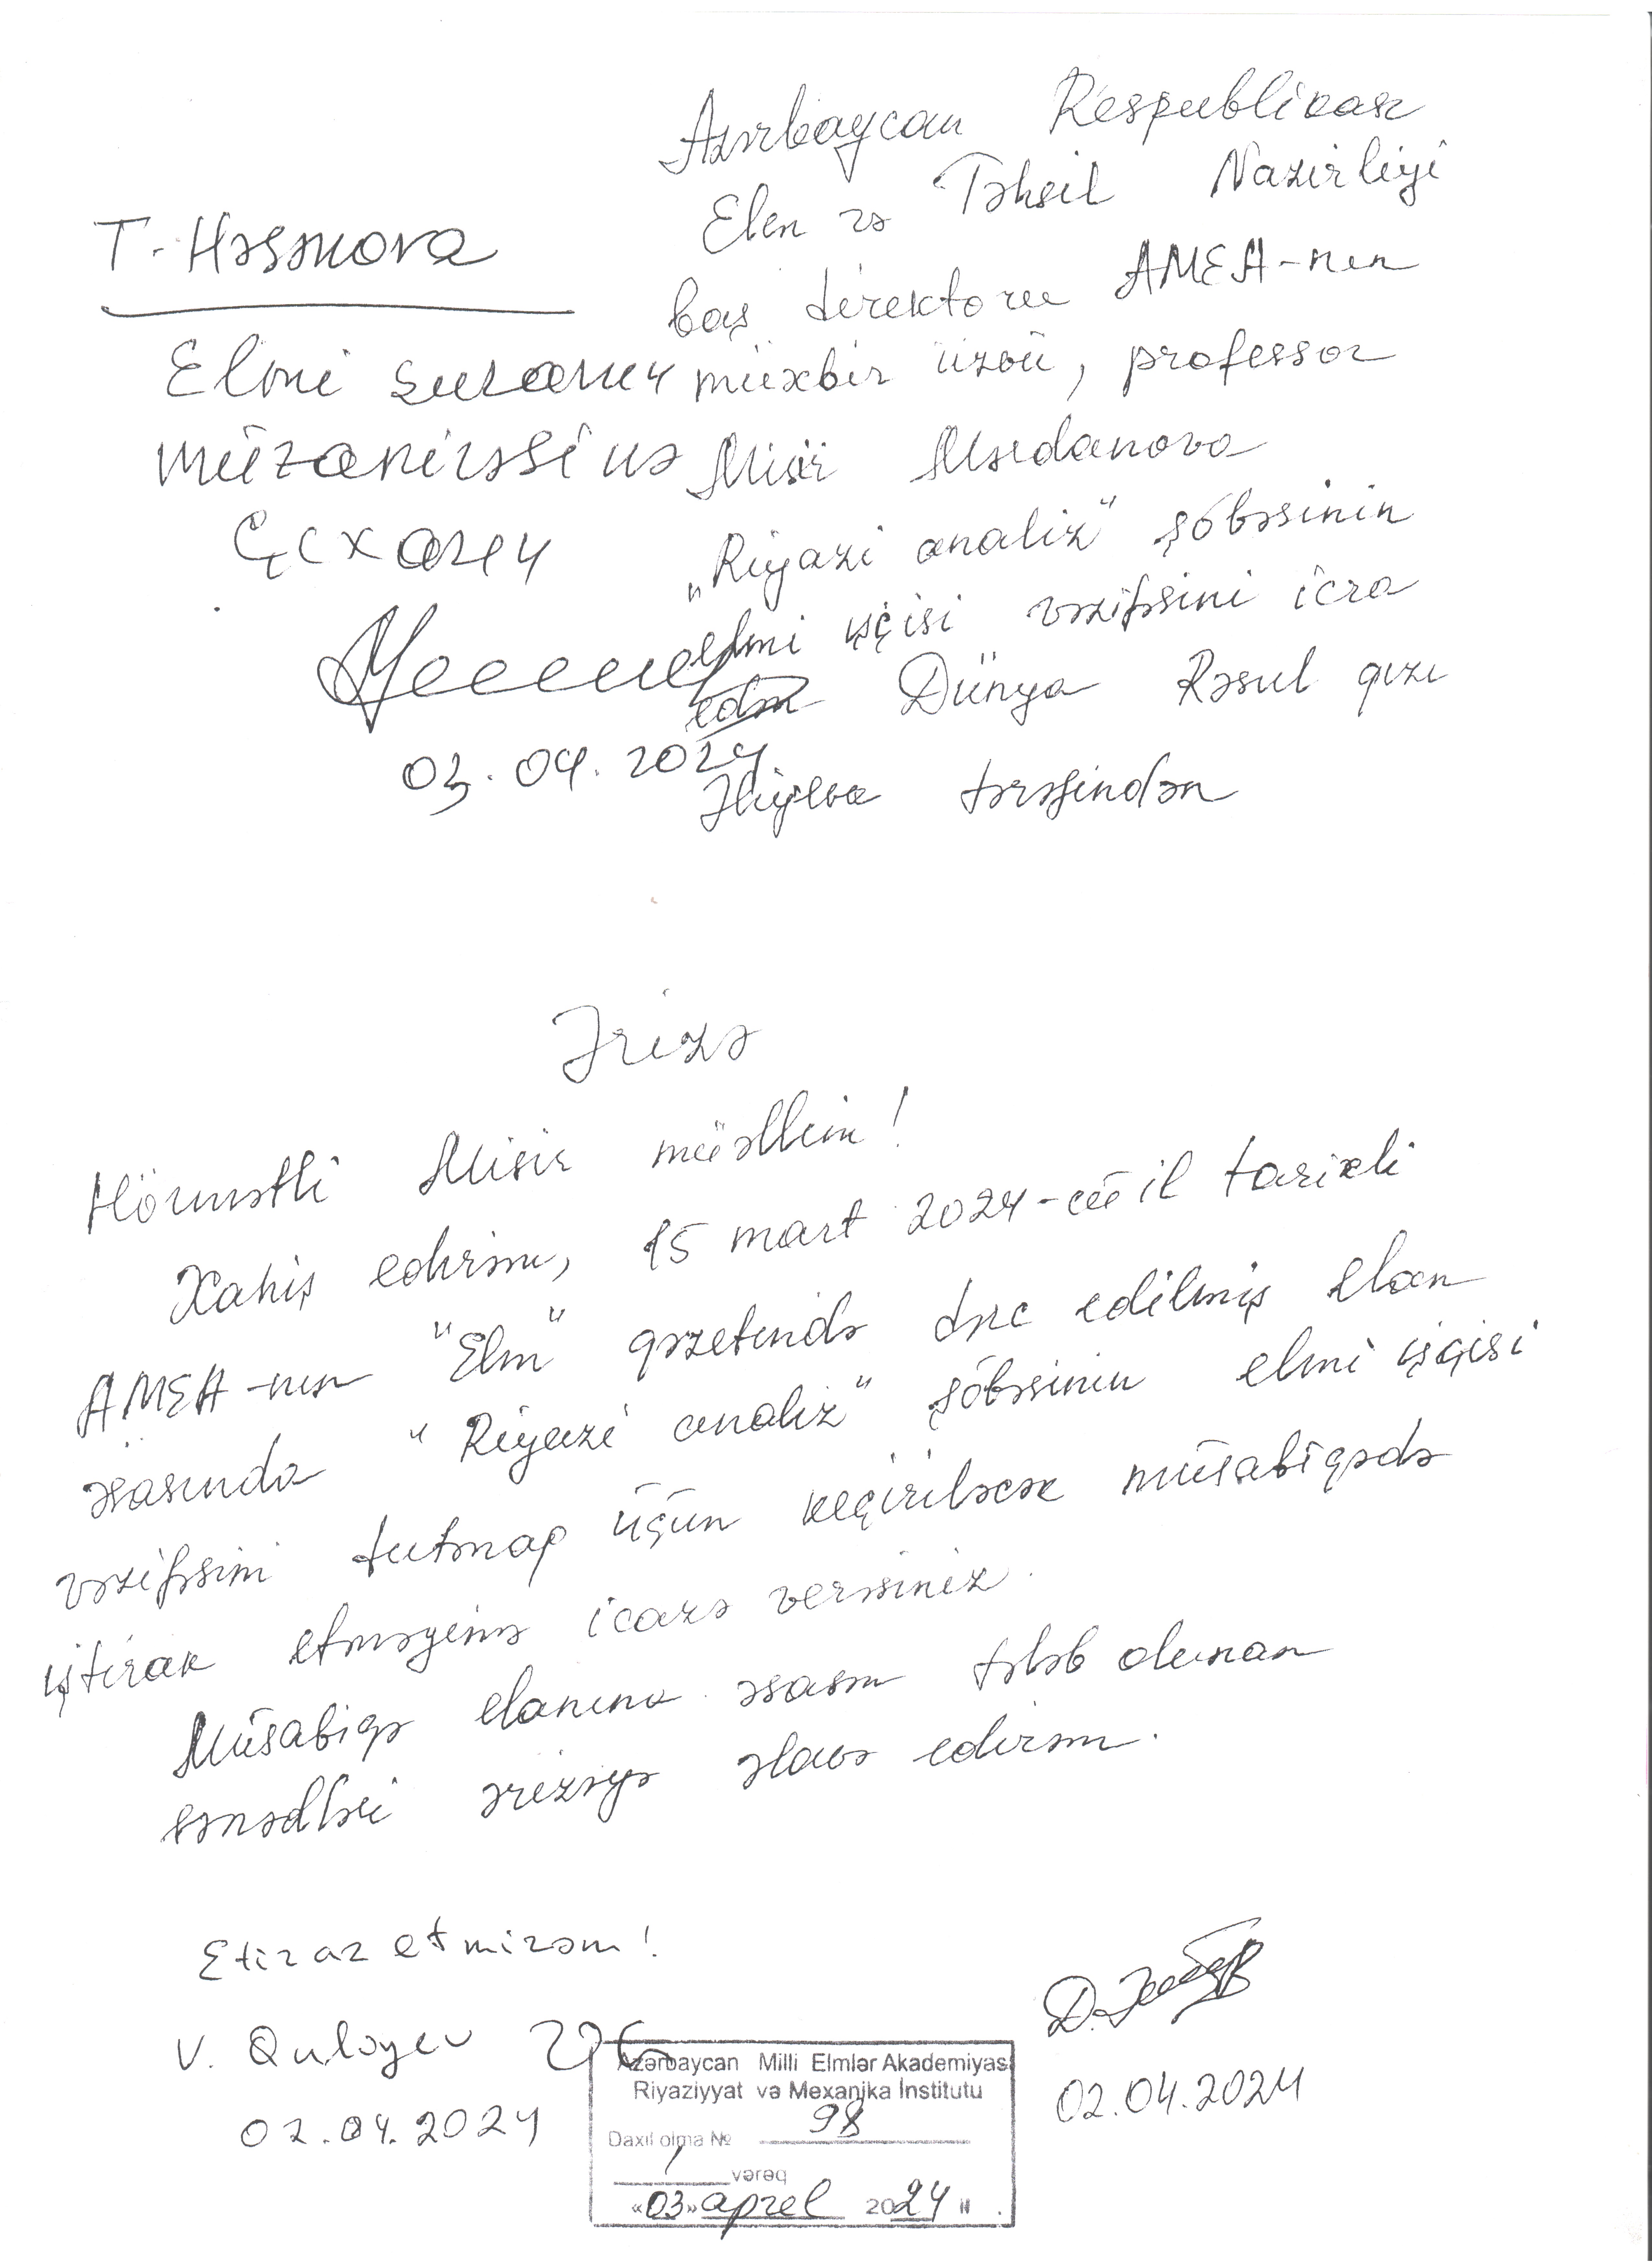 Azərbaycan Respublikası
Elm və Təhsil Nazirliyi
baş direktoru AMEA-nın
müxbir üzvü, professor
Misir Mərdanova
„Riyazi analiz" şöbəsinin
elmi işçisi vəzifəsini icra
edən Dünya Rəsul qızı
Əliyeva tərəfindən
T. Həsənova
Elmi şuranın
müzakirəsinə
çıxarın
03.04.2024
Ərizə
Hörmətli Misir müəllim!
Xahiş edirəm, 15 mart 2024-cü il tarixli
AMEA-nın "Elm" qəzetində dərc edilmiş elan
əsasında "Riyazi analiz" şöbəsinin elmi işçisi
vəzifəsini tutmaq üçün keçiriləcək müsabiqədə
iştirak etməyimə icazə verəsiniz.
Müsabiqə elanına əsasən tələb olunan
sənədləri ərizəyə əlavə edirəm.
Etiraz etmirəm!
V. Quliyev
02.04.2024
02.04.2024
Azərbaycan Milli Elmlər Akademiyası
Riyaziyyat və Mexanika İnstitutu
Daxil olma № 98
1 vərəq
«03» aprel 2024 il